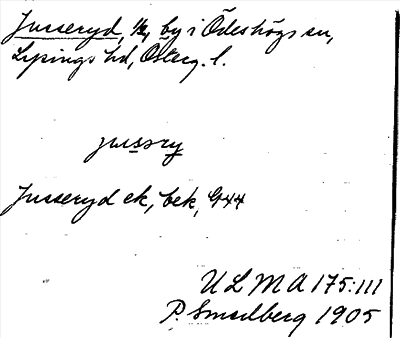 Jusseryd, by i Ödeshögs sn,
Lysings hd, Österg. l.
jussry
Jusseryd ek, bek, G44
ULMA 175:111
P. Smedberg 1905